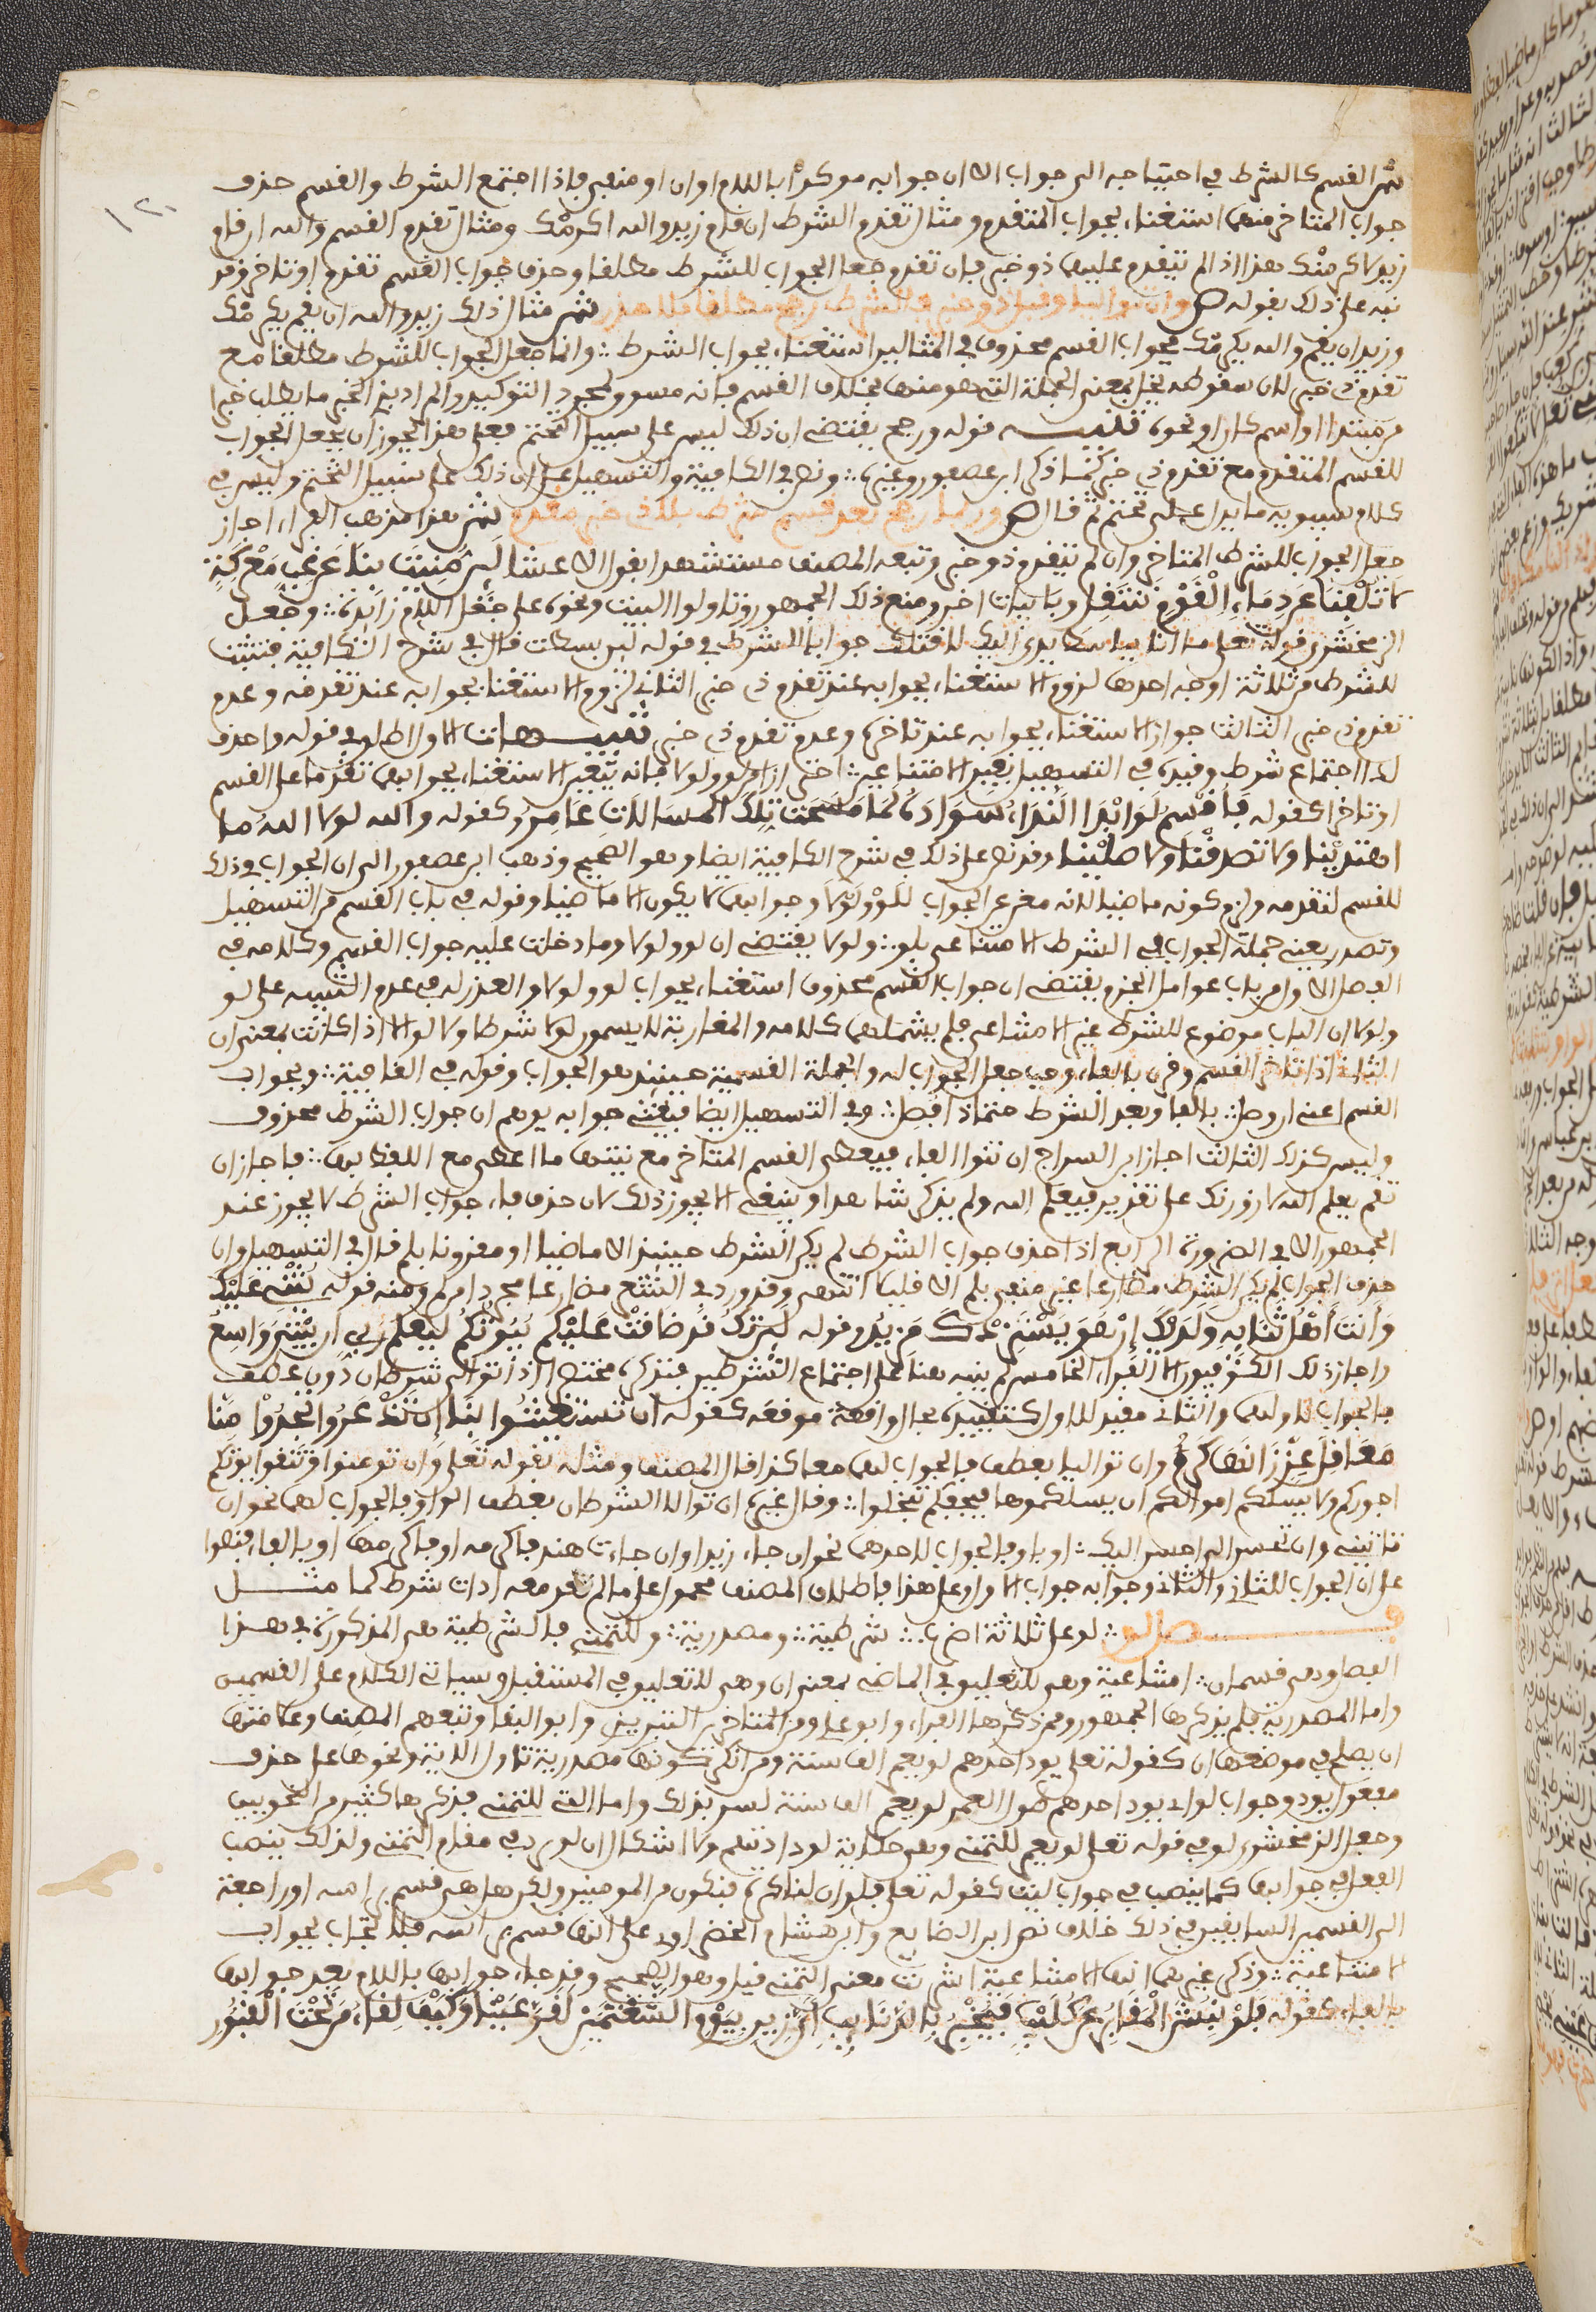 ش القسم كالشرط في احتياجه الى جواب الا ان جوابه موكد باللام او ان او منفي فاذا اجتمع الشرط والقسم حذف
جواب المتاخر منهما استغناء بجواب المتقدم ومثال تقدم الشرط ان قام زيد والله اكرمك ومثال تقدم القسم والله ان قام
زيد لاكرمنك هذا اذا لم يتقدم عليهما ذو خبر فان تقدم جعل الجواب للشرط مطلقا وحذف جواب القسم تقدم او تاخر وقد
نبه على ذلك بقوله ص وان تواليا وقبل ذو خبر فالشرط رجح مطلقا بلا حذر ش مثال ذلك زيد والله ان يقم يكرمك
وزيد ان يقم والله يكرمك فجواب القسم محذوف في المثالين استغناء بجواب الشرط وانما جعل الجواب للشرط مطلقا مع
تقدم ذي خبر لان سقوطه يخل بمعنى الجملة التي هو منها بخلاف القسم فانه مسوق لمجرد التوكيد والمراد بذي الخبر ما يطلب خبرا
من مبتدا او اسم كان او نحوه تنبيه قوله ورجح يقتضي ان ذلك ليس على سبيل التحتم فعلى هذا يجوز ان يجعل الجواب
للقسم المتقدم مع تقدم ذي خبر كما ذكر ابن عصفور وغيره ونص في الكافية والتسهيل على ان ذلك على سبيل التحتم وليس في
كلام سيبويه ما يدل على تحتم ثم قال ص وربما رجح بعد قسم شرط بلا ذي خبر مقدم ش هذا مذهب الفراء اجاز
جعل الجواب للشرط المتاخر وان لم يتقدم ذو خبر وتبعه المصنف مستشهدا بقول الاعشى لَئِن مُنِيتَ بِنَا عَن غِبِّ مَعْرِكَةٍ
لا تُلْفِنَا عَن دِمَاءِ الْقَوْمِ نَنتَفِل وبابيات اخر ومنع ذلك الجمهور وتاولوا البيت ونحوه على جعل اللام زائدة وجعل
الزمخشري قوله تعلى ما انا بباسط يدي اليك لاقتلك جوابا للشرط في قوله لئن بسطت قال في شرح الكافية فتثبت
للشرط من ثلاثة اوجه احدها لزوم الاستغناء بجوابه عند تقدم ذي خبر الثاني لزوم الاستغناء بجوابه عند تقدمه وعدم
تقدم ذي خبر الثالث جواز الاستغناء بجوابه عند تاخره وعدم تقدم ذي خبر تنبيهات الاول اطلق في قوله واحذف
لدا اجتماع شرط وقيده في التسهيل بغير الامتناعي احترازا من لو ولولا فانه يتعين الاستغناء بجوابهما تقدما على القسم
او تاخرا كقوله فَاُقْسِمُ لَوْ ابْدَا النَّدِيُّ سَوَادَهُ لَمَا مَسَحَت تِلْكَ الْمُسَالَاتِ عَامِرُ وكقوله والله لولا الله ما
اهتدَيْنا ولا تصدقْنا ولا صلّيْنا وقد نص على ذلك في شرح الكافية ايضا وهو الصحيح وذهب ابن عصفور الى ان الجواب في ذلك
للقسم لتقدمه ولزم كونه ماضيا لانه مغن عن الجواب للَوْ ولَوْلَا وجوابهما لا يكون الا ماضيا وقوله في باب القسم من التسهيل
وتصدر يعني جملة الجواب في الشرط الامتناعي بلو ولولا يقتضي ان لو ولولا وما دخلت عليه جواب القسم وكلامه في
الفصل الاول من باب عوامل الجزم يقتضي ان جواب القسم محذوف استغناء بجواب لو ولولا والعذر له في عدم التنبيه على لو
ولولا ان الباب موضوع للشرط غير الامتناعي فلم يشملهما كلامه والمغاربة لا يسمون لولا شرطا ولا لو الا اذا كانت بمعنى ان
الثاني اذا تاخر القسم وقرن بالفاء وجب جعل الجواب له والجملة القسمية حينئذ هو الجواب وقوله في الكافية وبجواب
القسم اغني ان وصل بالفا وبعد الشرط حتما ذا فصل وفي التسهيل ايضا فيغني جوابه يوهم ان جواب الشرط محذوف
وليس كذلك الثالث اجاز ابن السراج ان تنوى الفاء فيعطى القسم المتاخر مع نيتها ما اعطي مع اللفظ بها فاجاز ان
تقم يعلم الله لازورنك على تقدير فيعلم الله ولم يذكر شاهدا وينبغي الا يجوز ذلك لان حذف فاء جواب الشرط لا يجوز عند
الجمهور الا في الضرورة الرابع اذا حذف جواب الشرط لم يكن الشرط حينئذ الا ماضيا او مقرونا بلم قال في التسهيل وان
حذف الجواب لم يكن الشرط مضارعا غير منفي بلم الا قليلا انتهى وقد ورد في الشعر مضارعا مجردا من لم ومنه قوله يُثْنِي عَلَيْكَ
وَانتَ أَهْلُ ثَنَائِهِ وَلَدَيْكَ إِنْ هُوَ يَسْتَزِدْكَ مَزِيدُ وقوله لَئِن تَكُ قَد ضَاقَتْ عَلَيْكُم بُيُوتُكُم لَيَعْلَمُ رَبِّي ان بَيْتِيَ وَاسِعُ
واجاز ذلك الكوفيون الا الفراء الخامس لم ينبه هنا على اجتماع الشرطين فنذكره مختصرا اذا توالى شرطان دون عطف
فالجواب لاولهما والثاني مقيد للاول كتقييده بحال واقعة موقعه كقوله ان تَسْتَغِيثُوا بِنَا إِن تُذْعَرُوا تَجِدُوا مِنَّا
مَعَاقِلَ عِزٍّ زَانَهَا كَرَمُ وان تواليا بعطف فالجواب لهما معا كذا قال المصنف ومثله بقوله تعلى وان تومنوا وتتقوا يوتكم
اجوركم ولا يسئلكم اموالكم ان يسئلكموها فيحفكم تبخلوا وقال غيره ان توالا الشرطان بعطف الواو فالجواب لهما نحو ان
تاتني وان تحسن الي احسن اليك او باو فالجواب لاحدهما نحو ان جاء زيد او ان جاءت هند فاكرمه او فاكرمها او بالفاء فنصوا
على ان الجواب للثاني والثاني وجوابه جواب الاول وعلى هذا فاطلاق المصنف محمول على ما لم تعد معه ادات شرط كما مثل
فصل لو لو على ثلاثة اضرب شرطية ومصدرية وللتمني فالشرطية هي المذكورة في هذا
الفصل وهي قسمان امتناعية وهي للتعليق في الماضي بمعنى ان وهي للتعليق في المستقبل وسياتي الكلام على القسمين
واما المصدرية فلم يذكرها الجمهور وممن ذكرها الفراء وابو علي ومن المتاخرين التبريزي وابو البقاء وتبعهم المصنف وعلامتها
ان يصلح في موضعها ان كقوله تعلى يود احدهم لو يعمر الف سنة ومن انكر كونها مصدرية تاول الاية ونحوها على حذف
مفعول يود وجواب لو اي يود احدهم طول العمر لو يعمر الف سنة لسر بذلك واما التي للتمني فذكرها كثير من النحويين
وجعل الزمخشري لو في قوله تعلى لو يعمر للتمني وهي حكاية لودادتهم ولا اشكال ان لو ترد في مقام التمني ولذلك ينصب
الفعل في جوابها كما ينصب في جواب ليت كقوله تعلى فلو ان لنا كرة فنكون من المومنين ولكن هل هي قسم براسه او راجعة
الى القسمين السابقين في ذلك خلاف نص ابن الضايع وابن هشام الخضراوي على انها قسم براسه فلا تجاب بجواب
الامتناعية وذكر غيرهما انها الامتناعية اشربت معنى التمني قيل وهو الصحيح وقد جاء جوابها باللام بعد جوابها
بالفاء كقوله فَلَوْ نُبِشَ الْمَقَابِرُ عَن كُلَيْبٍ فَيُخْبَرَ بِالذَّنَائِبِ أَيُّ زِيرِ بِيَوْمِ الشَّعْثَمَيْنِ لَقَرَّ عَيْنًا وَكَيْفَ لِقَاءُ مَن تَحْتَ الْقُبُورِ